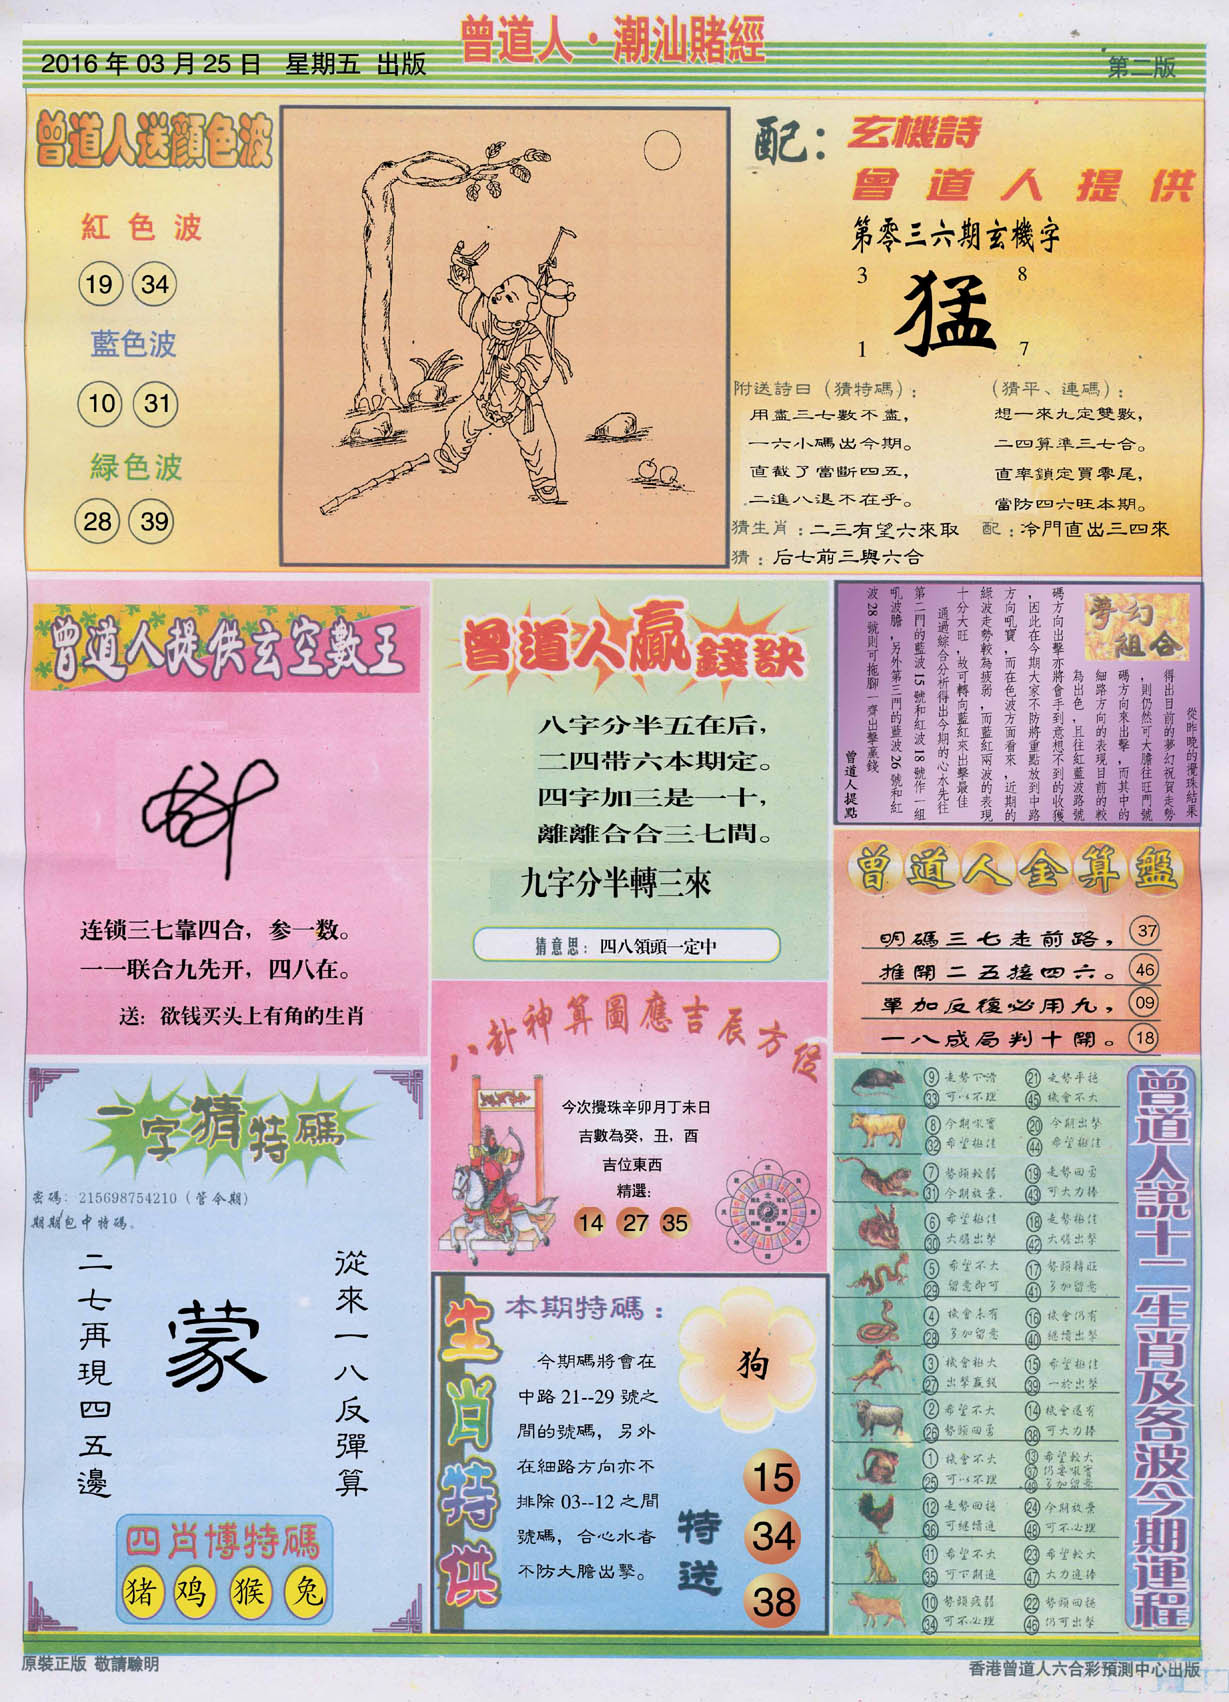 曾道人·潮汕賭經
2016年03月25日 星期五 出版
第二版
曾道人送顏色波
紅色波
19 34
藍色波
10 31
緑色波
28 39
配：玄機詩
曾道人提供
第零三六期玄機字
3 8
猛
1 7
附送詩曰（猜特碼）：
用盡三七數不盡，
一六小碼出今期。
直截了當斷四五，
二進八退不在乎。
（猜平、連碼）：
想一來九定雙數，
二四算準三七合。
直率鎖定買零尾，
當防四六旺本期。
猜生肖：二三有望六來取
配：冷門直出三四來
猜：后七前三與六合
曾道人提供玄空數王
连锁三七靠四合，参一数。
一一联合九先开，四八在。
送：欲钱买头上有角的生肖
曾道人贏錢訣
八字分半五在后，
二四带六本期定。
四字加三是一十，
離離合合三七間。
九字分半轉三來
猜意思：四八領頭一定中
夢幻組合
從昨晚的攪珠結果
得出目前的夢幻祝賀走勢
，則仍然可大膽往旺門號
碼方向來出擊，而其中的
細路方向的表現目前的較
為出色，且往紅藍波路號
碼方向出擊亦將會手到意想不到的收獲
，因此在今期大家不防將重點放到中路
方向吼寶，而在色波方面看來，近期的
綠波走勢較為疲弱，而藍紅兩波的表現
十分大旺，故可轉向藍紅來出擊最佳
通過綜合分析得出今期的心水先往
第二門的藍波15號和紅波18號作一組
吼波膽，另外第三門的藍波26號和紅
波28號則可拖腳一齊出擊贏錢
曾道人提點
曾道人金算盤
明碼三七走前路， 37
推開二五接四六。 46
單加反復必用九， 09
一八成局判十開。 18
八卦神算圖應吉辰方位
今次攪珠辛卯月丁未日
吉數為癸，丑，酉
吉位東西
精選：
14 27 35
一字猜特碼
密碼：215698754210（管令期）
期期包中特碼。
從來一八反彈算
蒙
二七再現四五邊
四肖博特碼
猪 鸡 猴 兔
生肖特供
本期特碼：
今期碼將會在
中路21--29號之
間的號碼，另外
在細路方向亦不
排除03--12之間
號碼，合心水者
不防大膽出擊。
狗
特送
15
34
38
曾道人說十二生肖及各波今期運程
9 走勢下滑 21 走勢平穩
33 可以不理 45 機會不大
8 今期吼實 20 今期出擊
32 希望極佳 44 希望極佳
7 勢頭較弱 19 走勢回勇
31 今期放棄 43 可大力捧
6 希望極佳 18 走勢極佳
30 大膽出擊 42 大膽出擊
5 希望不大 17 勢頭轉旺
29 留意即可 41 多加留意
4 機會未有 16 機會仍有
28 多加留意 40 繼續出擊
3 機會極大 15 希望極佳
27 出擊贏錢 39 一於出擊
2 希望不大 14 機會還有
26 勢頭回勇 38 可大力捧
1 機會不大 13 希望較大
25 可以不理 37 仍要吼實
49 多加留意
12 走勢回穩 24 今期放棄
36 可繼續追 48 可不必理
11 希望不大 23 希望較大
35 可下期追 47 大力追捧
10 勢頭疲弱 22 勢頭回穩
34 可不必理 46 仍可出擊
原裝正版 敬請驗明
香港曾道人六合彩預測中心出版